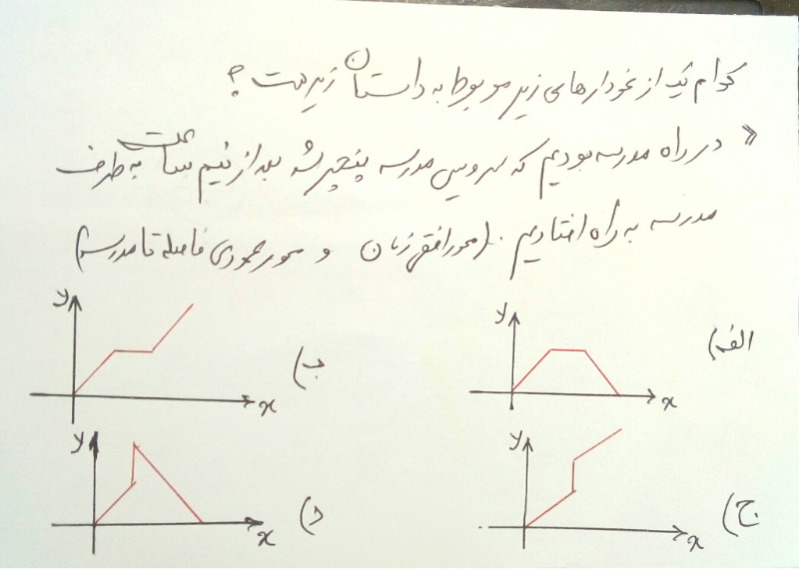 کدام یک از نمودارهای زیر مربوط به داستان زیر است؟
« در راه مدرسه بودیم که سرویس مدرسه پنچر شد بعد از نیم ساعت به طرف
مدرسه به راه افتادیم. (محور افقی زمان و محور عمودی فاصله تا مدرسه)
الف)
y
x
ب)
y
x
ج)
y
x
د)
y
x